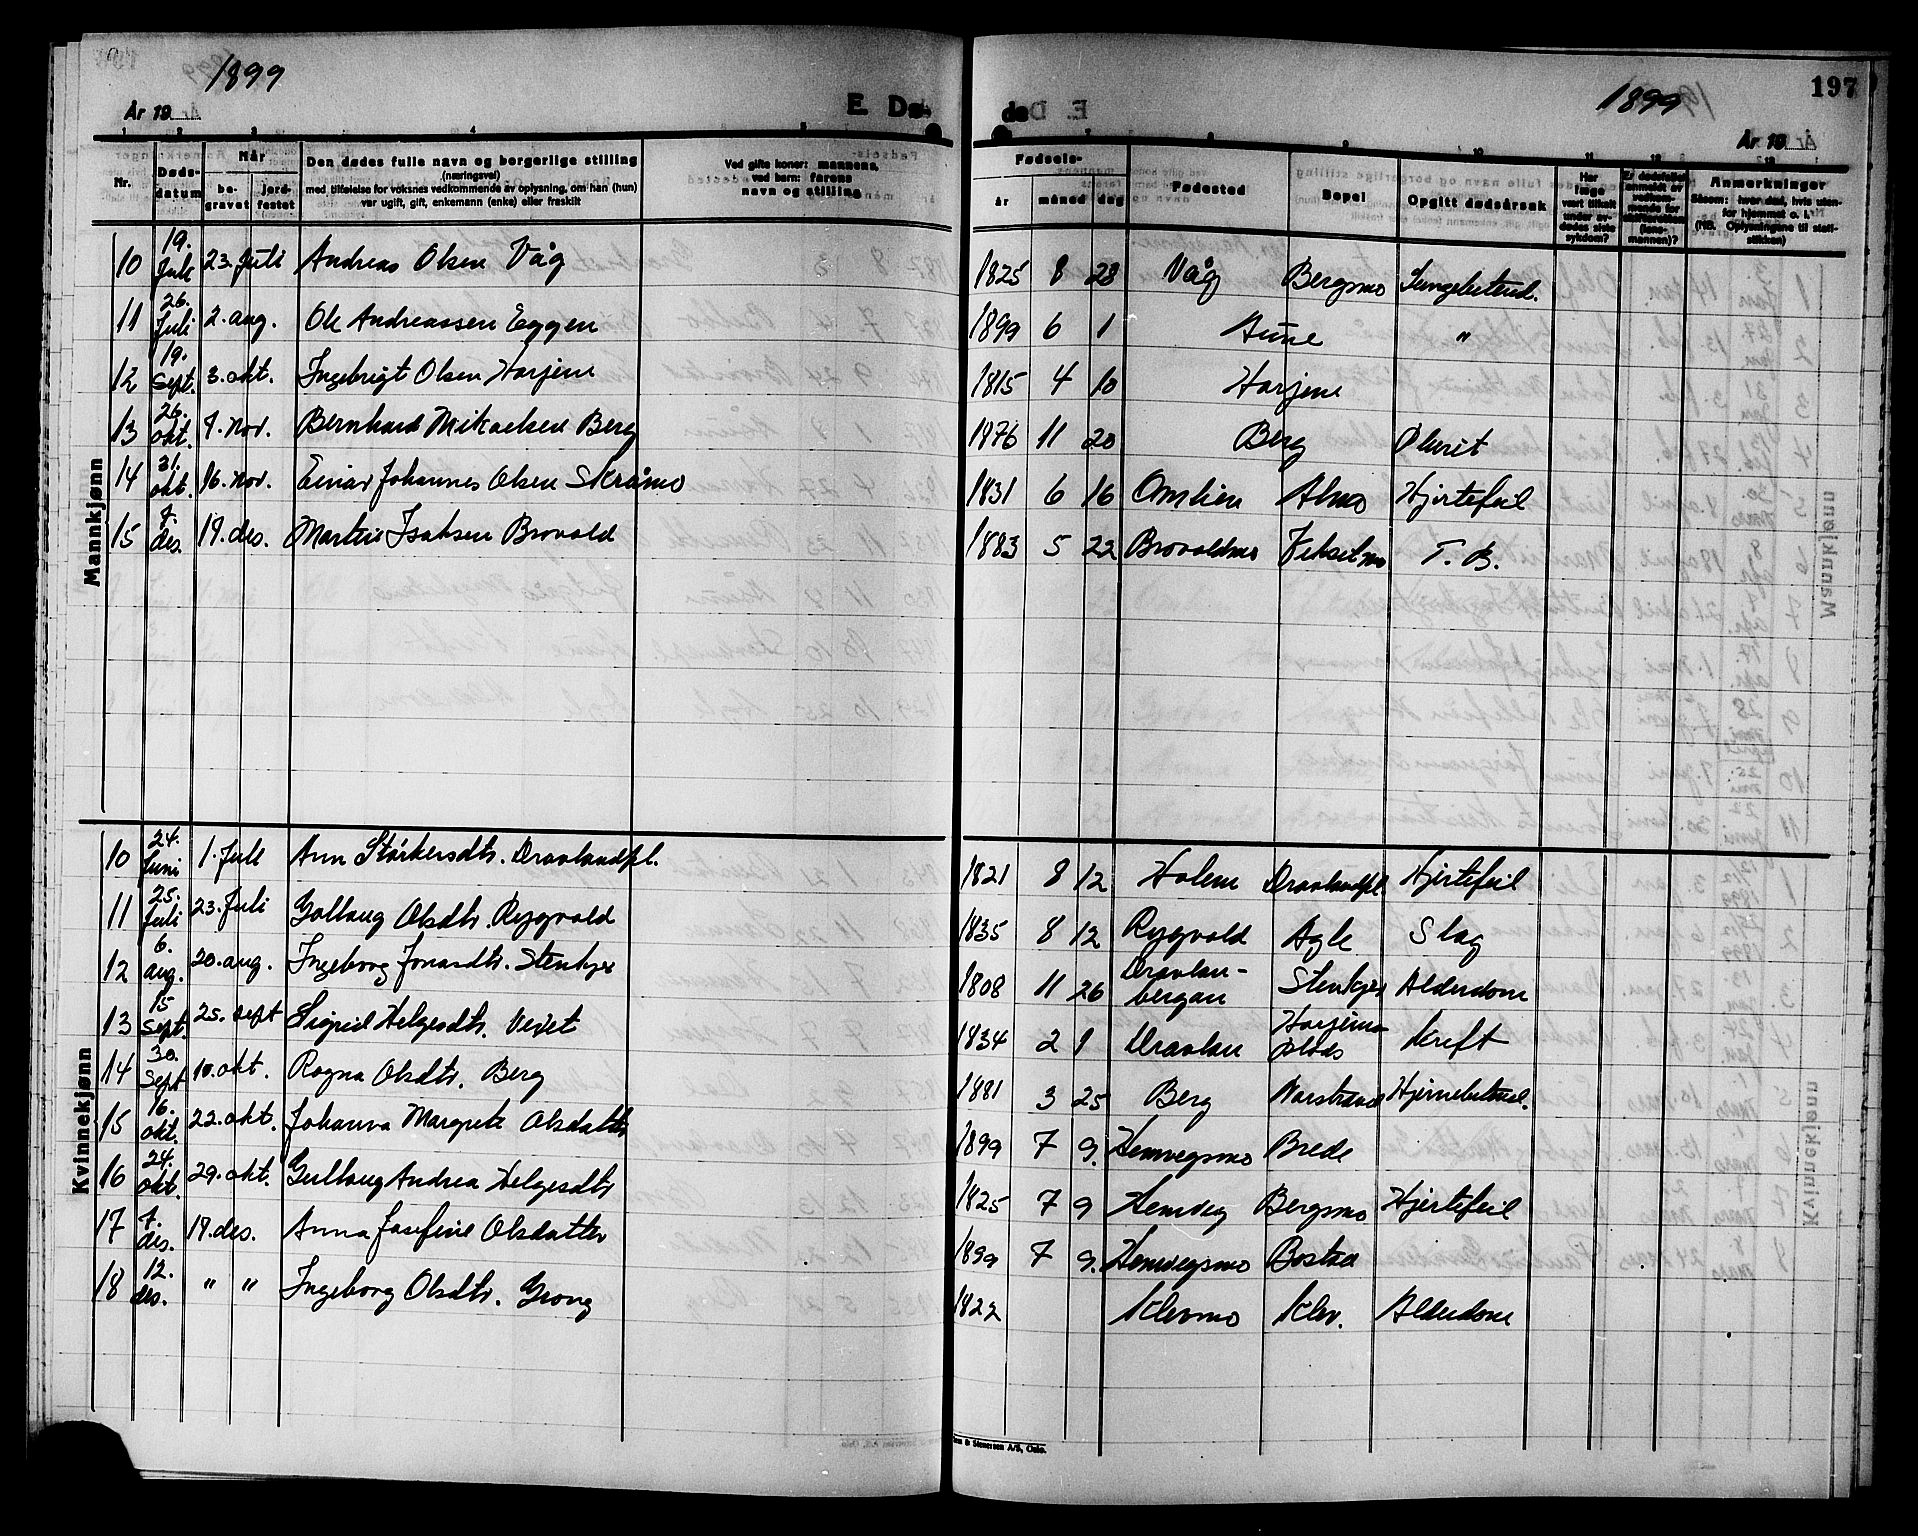 1899
År 19
E. Dø-
de
1899
197
År 19
Nr.
Døds-
datum
Når
be-
gravet
jord-
festet
Den dødes fulle navn og borgerlige stilling
(næringsvei)
med tilføielse for voksnes vedkommende av oplysning, om han (hun)
var ugift, gift, enkemann (enke) eller fraskilt
Ved gifte koner: mannens,
ved barn: farens
navn og stilling
Fødsels-
år
måned
dag
Fødested
Bopel
Opgitt dødsårsak
Har
læge
vært tilkalt
under av-
dødes siste
sykdom?
Er dødsfallet
anmeldt av
vedkom-
mende for
skifteretten
(lens-
mannen)?
Anmerkninger
Såsom: hvor død, hvis uten-
for hjemmet o. l.
(NB. Oplysningene til stati-
stikken)
Mannkjønn
10 19. Juli 23. Juli Andreas Olsen Våg 1825 8 28 Våg Bergsmo Lungebetend.
11 26. Juli 2. aug. Ole Andreassen Eggen 1899 6 1 Aune "
12 19. Sept. 3. okt. Ingebrigt Olsen Harjene 1815 4 10 Harjene
13 26. okt. 7. nov. Bernhard Mikaelsen Berg 1876 11 20 Berg Plevrit
14 31. okt. 16. nov. Einar Johannes Olsen Skråmo 1831 6 16 Omlien Almo Hjertefeil
15 7. des. 19. des. Martin Isaksen Brovold 1883 5 22 Brovoldmo T. B.
Kvinnekjønn
10 24. Juni 1. Juli Ann Stårkersdtr. Dravlandpl. 1821 8 12 Holem Dravlandpl. Hjertefeil
11 25. Juli 23. Juli Gollaug Olsdtr. Rygvold 1835 8 12 Rygvold Agle Slag
12 6. aug. 20. aug. Ingeborg Jonasdtr. Stenkjer 1808 11 26 Dravlan-
bergan Stenkjer Alderdom
13 15 Sept. 25. sept Sigrid Helgesdtr. Veiet 1834 2 9 Dravlan Harjema
plads Kreft
14 30. Sept 10. okt. Ragna Olsdtr. Berg 1881 3 25 Berg Hjernebetend.
15 16. okt. 22. okt. Johanna Margrete Olsdatter 1899 7 9. Hemvegsmo Brede
16 24. okt. 29. okt. Gullaug Andrea Helgesdtr 1825 7 9 Hemveg Bergsmo Hjertefeil
17 7. des. 19. des. Anna Josefine Olsdatter 1899 7 9. Hemvegsmo Bostad
18 12. des. " " Ingeborg Olsdtr. Grong 1822 Klevmo Klev. Alderdom
& Stenersen A/S, Oslo.